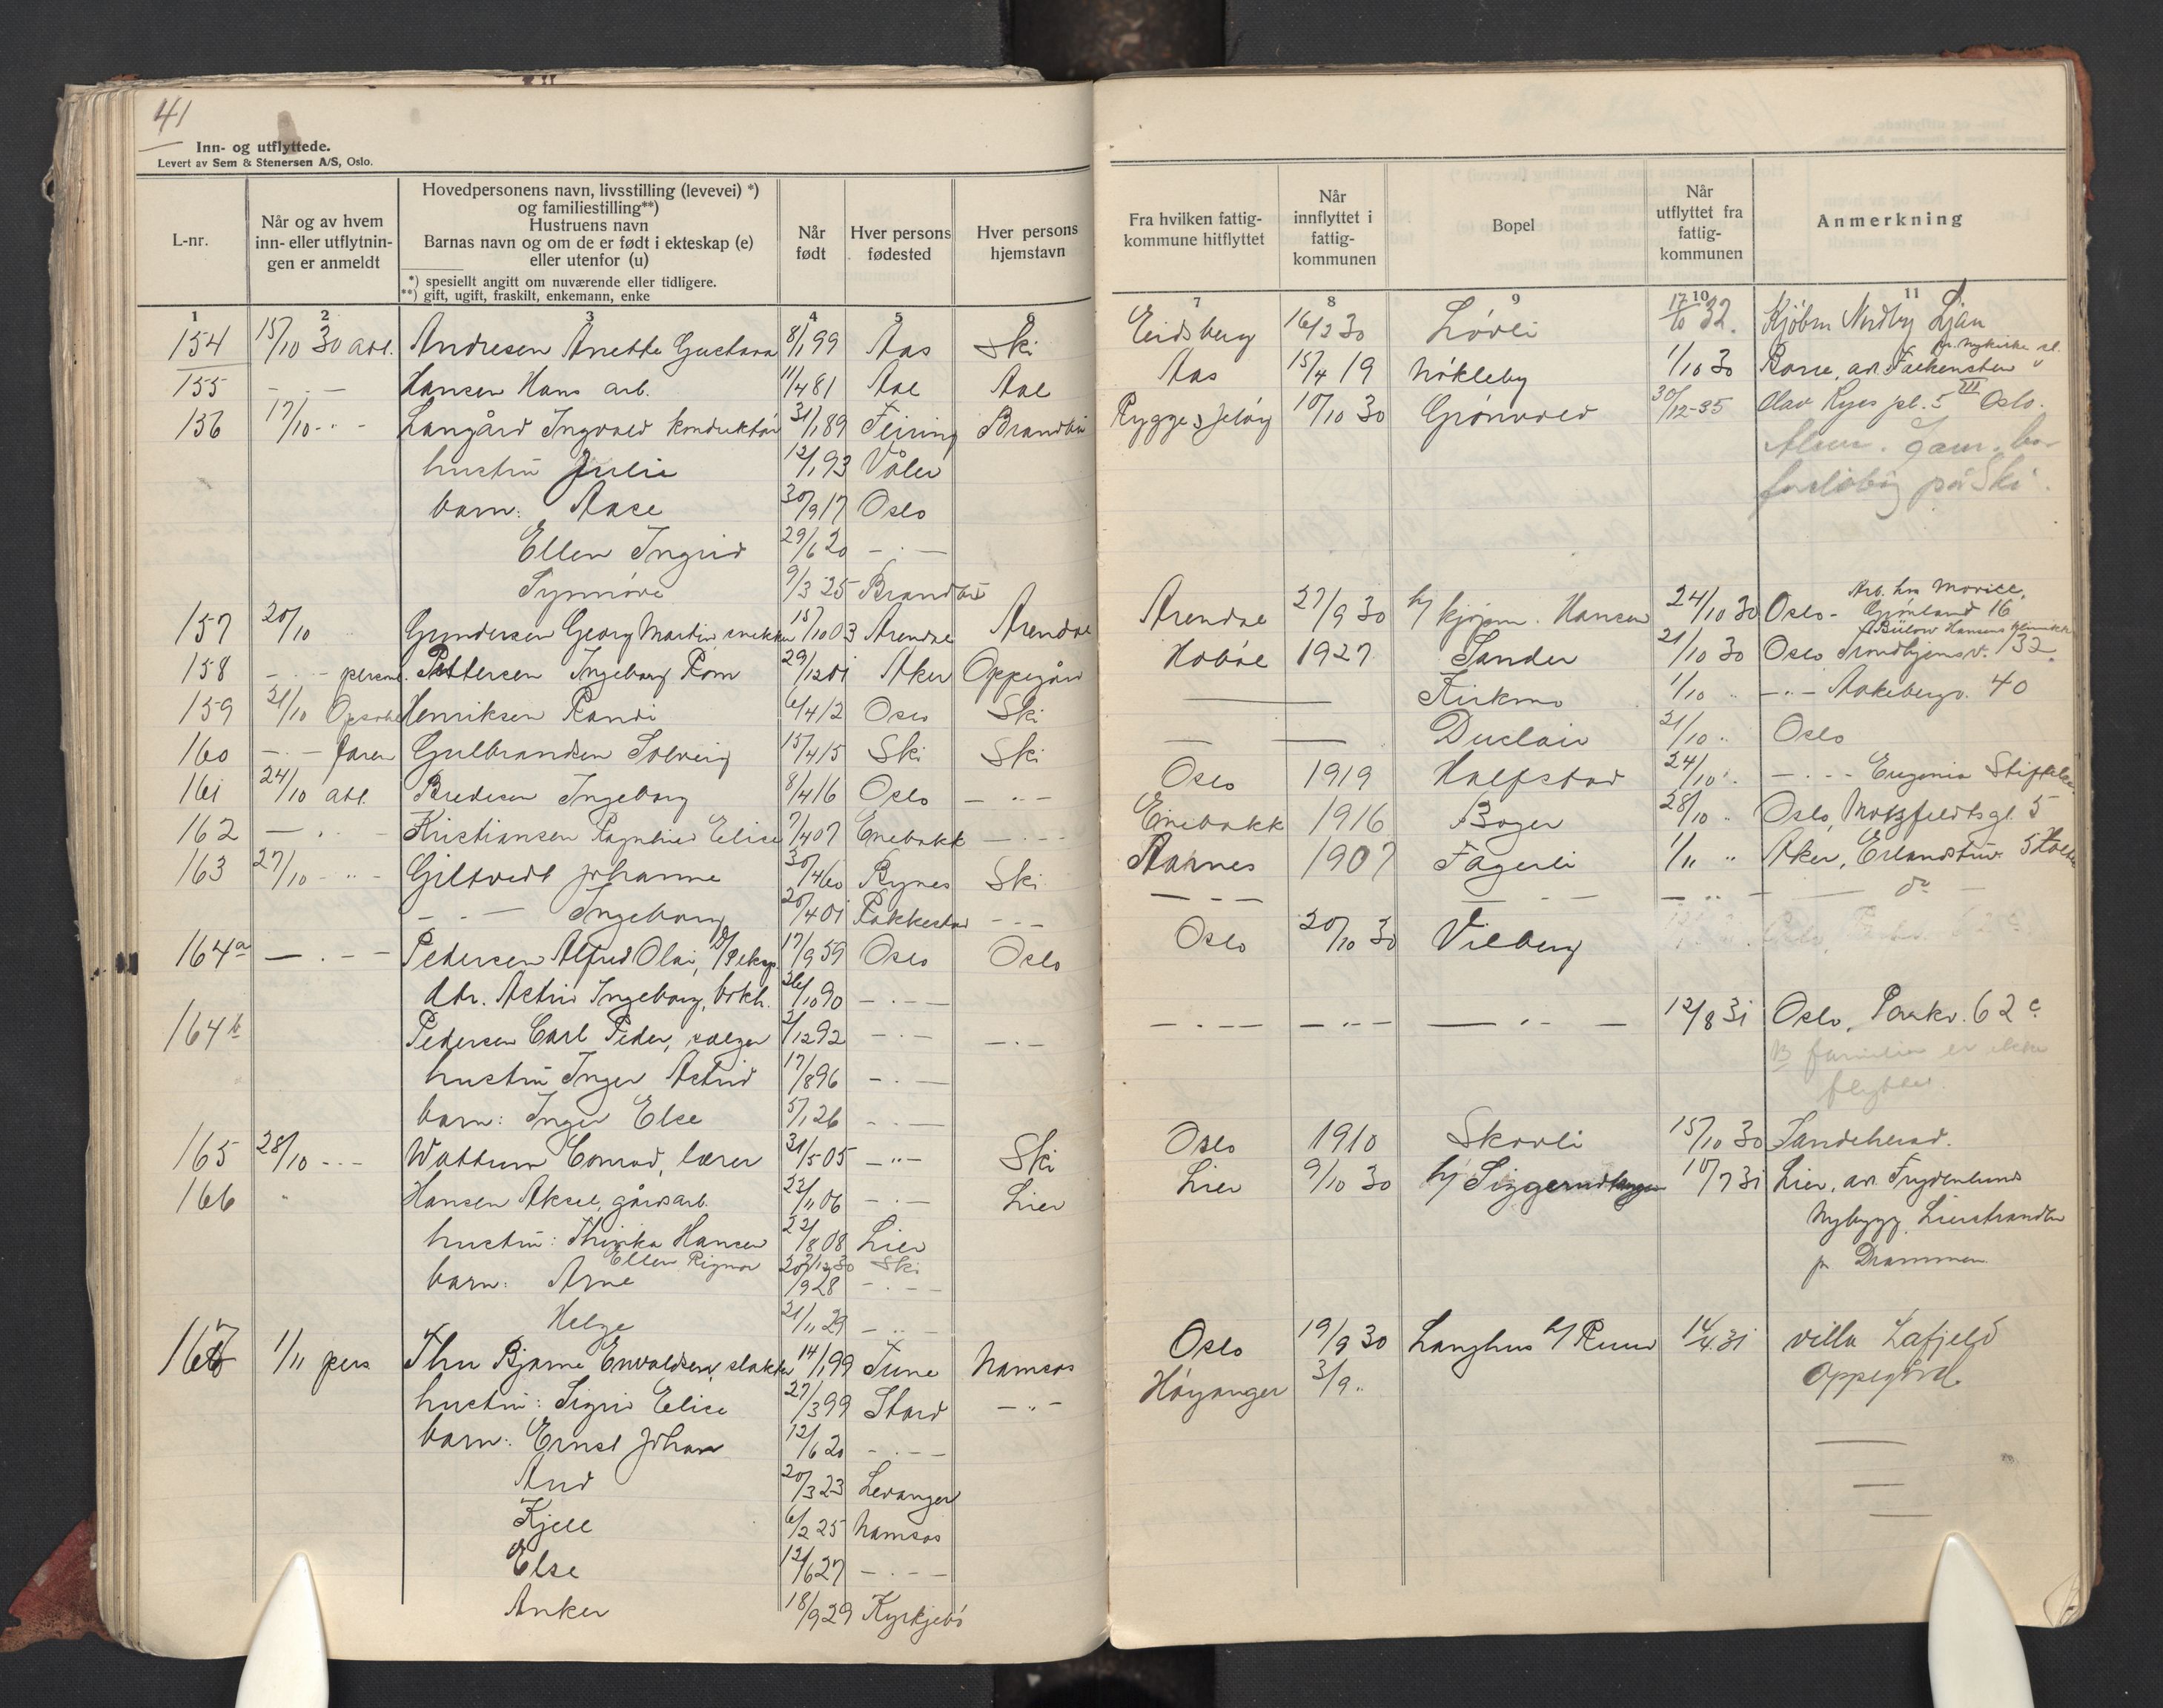 41
Inn- og utflyttede.
Levert av Sem & Stenersen A/S, Oslo.
L-nr.
Når og av hvem
inn- eller utflytnin-
gen er anmeldt
Hovedpersonens navn, livsstilling (levevei) *)
og familiestilling**)
Hustruens navn
Barnas navn og om de er født i ekteskap (e)
eller utenfor (u)
*) spesiellt angitt om nuværende eller tidligere.
**) gift, ugift, fraskilt, enkemann, enke
Når
født
Hver persons
fødested
Hver persons
hjemstavn
Fra hvilken fattig-
kommune hitflyttet
Når
innflyttet i
fattig-
kommunen
Bopel
Når
utflyttet fra
fattig-
kommunen
Anmerkning
1 2 3 4 5 6 7 8 9 10 11
154 15/10 30 Andresen Anette Gustava 8/1 99 Aas Ski Eidsberg 16/2 30 Løvli 17/10 32. Kjøbm Nordby Ljan
155 - . - Hansen Hans arb. 11/4 81 Aal Aal Aas 15/4 19 Nökleby 1/10 30
156 17/10 - " - Langård Ingvald konduktör 31/1 89 Feiring Brandbu Rygge, Jelöy 10/10 30 Grönvold 30/12-35 Olav Ryes pl. 5 III Oslo.
hustru Julie 12/1 93 Våler
barn: Aase 30/9 17 Oslo
forlöbig på Ski.
Ellen Ingrid 29/6 20 - . -
Synnöve 9/3 25 Brandbu
157 20/10 Gundersen Georg Martin, snekker 15/10 03 Arendal Arendal Arendal 27/9 30 h/ kjøpm. Hansen 24/10 30 Oslo - Grönland 16
158 - . - person. Pettersen Ingeborg Rom 29/12 01 Aker Oppegård Hoböl 1927 Sander 21/10 30 Oslo Trondhjemsv. 132
159 21/10 Henriksen Randi 6/4 12 Oslo Ski — Kirkmo 1/10 " - " - Aakebergv. 40
160 - . - faren Gulbrandsen Solveig 15/4 15 Ski Ski — — Duclair 21/10 " Oslo
161 24/10 Bredesen Ingeborg 8/4 16 Oslo - " - Oslo 1919 Halfstad 24/10 " - " - Eugenia Stiftelse
162 - . - Kristiansen Ragnhild Elise 7/4 07 Enebakk - . - Enebakk 1916 Boger 28/10 " Oslo, Motzfeldtsgt. 5
163 27/10 - " - Giltvedt Johanne 30/4 60 Rynes Ski Aarnes 1907 Fagerli 1/11 " Aker, Erlandstuv. 5
- . - Ingeborg 20/4 01 Rakkestad - - - - . - - . - - . - do
164a - . - - Pedersen Alfred Olai, 17/9 59 Oslo Oslo Oslo 20/10 30 Vilberg
dtr. Astrid Ingeborg, bokh. 26/10 90 - . -
164b Pedersen Carl Peder, selger 2/12 92 - . - - . - - . - - - . - - - . - - 12/8 31 Oslo, Parkv. 62 c
hustru Inger Astrid 17/8 96 - . -
familien er ikke
flyttet.
barn: Inger Else 5/1 26 - . -
165 28/10 - - - Wattum Conrad, lærer 31/5 05 - " - Ski Oslo 1910 Skovli 15/10 30 Sandeherad.
166 " Hansen Aksel, gårdsarb. 23/11 06 - . - Lier Lier 9/10 30 h/ Siggerud 10/7 31 Lier, adr. Frydenlund
Nybygg. Lierstranden
pr Drammen
hustru: Thinka Hansen 22/8 08 Lier
Ellen Rigmor Ski
barn: Arne 928 - . -
Helge 21/11 29 - . -
167 1/11 pers Thu Bjarne Envaldsen, slakter 14/1 99 Tune Namsos Oslo 19/9 30 Langhus h/ Ruud 14/4 31 villa Lafjeld
Oppegård.
hustru: Sigrid Elise 27/3 99 Stord - " - Höyanger 3/9 "
barn: Ernst Johan 12/6 20 - . -
Aud 20/3 23 Levanger
Kjell 6/2 25 Namsos
Else 12/6 27 - . -
Anker 18/9 29 Kyrkjebö